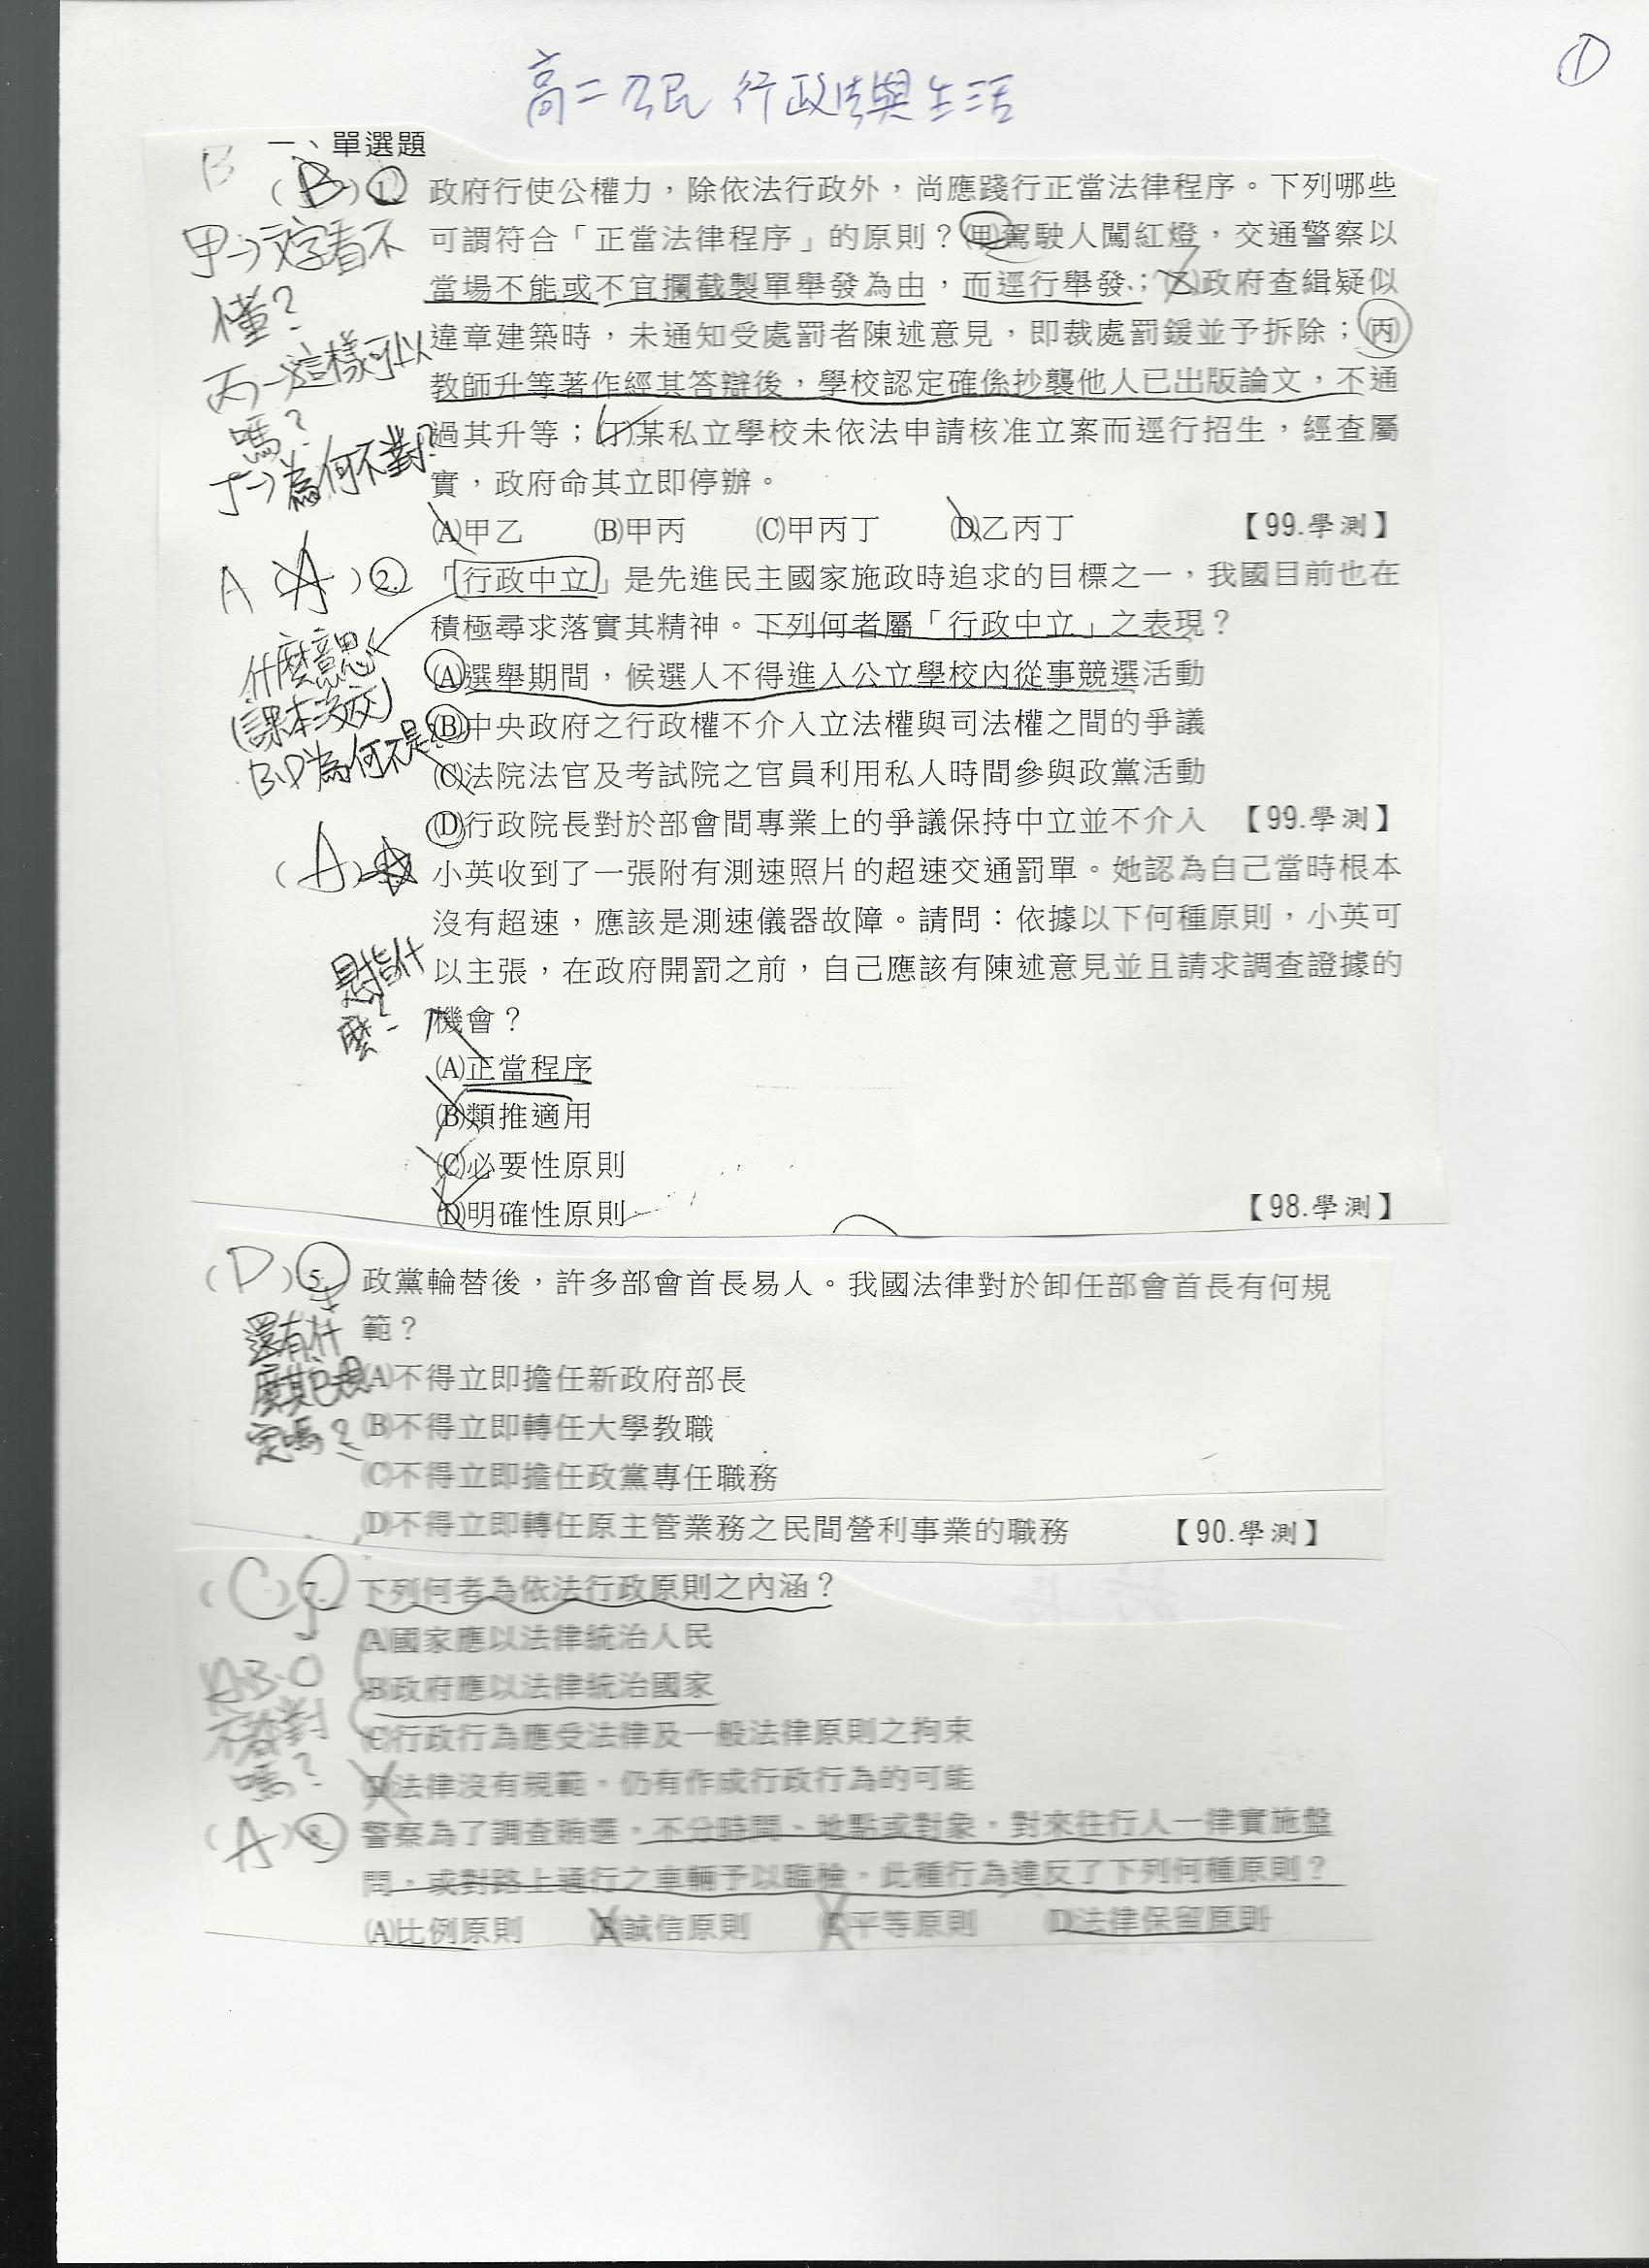 ①
高二公民 行政法與生活
一、單選題
B
(B)1. 政府行使公權力，除依法行政外，尚應踐行正當法律程序。下列哪些
可謂符合「正當法律程序」的原則？(甲)駕駛人闖紅燈，交通警察以
當場不能或不宜攔截製單舉發為由，而逕行舉發；(乙)政府查緝疑似
違章建築時，未通知受處罰者陳述意見，即裁處罰鍰並予拆除；(丙)
教師升等著作經其答辯後，學校認定確係抄襲他人已出版論文，不通
過其升等；(丁)某私立學校未依法申請核准立案而逕行招生，經查屬
實，政府命其立即停辦。
甲→文字看不
懂？
丙→這樣可以
嗎？
丁→為何不對？
(A)甲乙 (B)甲丙 (C)甲丙丁 (D)乙丙丁 【99.學測】
A (A)2. 「行政中立」是先進民主國家施政時追求的目標之一，我國目前也在
積極尋求落實其精神。下列何者屬「行政中立」之表現？
(A)選舉期間，候選人不得進入公立學校內從事競選活動
(B)中央政府之行政權不介入立法權與司法權之間的爭議
(C)法院法官及考試院之官員利用私人時間參與政黨活動
(D)行政院長對於部會間專業上的爭議保持中立並不介入 【99.學測】
什麼意思
(課本沒交)
B.D為何不是？
(A) 小英收到了一張附有測速照片的超速交通罰單。她認為自己當時根本
沒有超速，應該是測速儀器故障。請問：依據以下何種原則，小英可
以主張，在政府開罰之前，自己應該有陳述意見並且請求調查證據的
機會？
是指什
麼？
(A)正當程序
(B)類推適用
(C)必要性原則
(D)明確性原則 【98.學測】
(D)5. 政黨輪替後，許多部會首長易人。我國法律對於卸任部會首長有何規
範？
(A)不得立即擔任新政府部長
(B)不得立即轉任大學教職
(C)不得立即擔任政黨專任職務
(D)不得立即轉任原主管業務之民間營利事業的職務 【90.學測】
還有什
麼其它規
定嗎？
(C)7. 下列何者為依法行政原則之內涵？
(A)國家應以法律統治人民
(B)政府應以法律統治國家
(C)行政行為應受法律及一般法律原則之拘束
(D)法律沒有規範，仍有作成行政行為的可能
不都對
嗎？
(A)8. 警察為了調查賄選，不分時間、地點或對象，對來往行人一律實施盤
問，或對路上通行之車輛予以臨檢，此種行為違反了下列何種原則？
(A)比例原則 (B)誠信原則 (C)平等原則 (D)法律保留原則